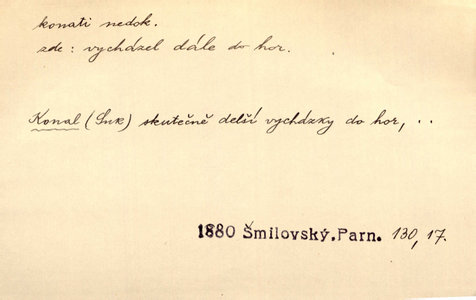 konati nedok.
zde: vycházel dále do hor.
Konal (Snk) skutečně delší vycházky do hor, ..
1880 Šmilovský, Parn. 130, 17.